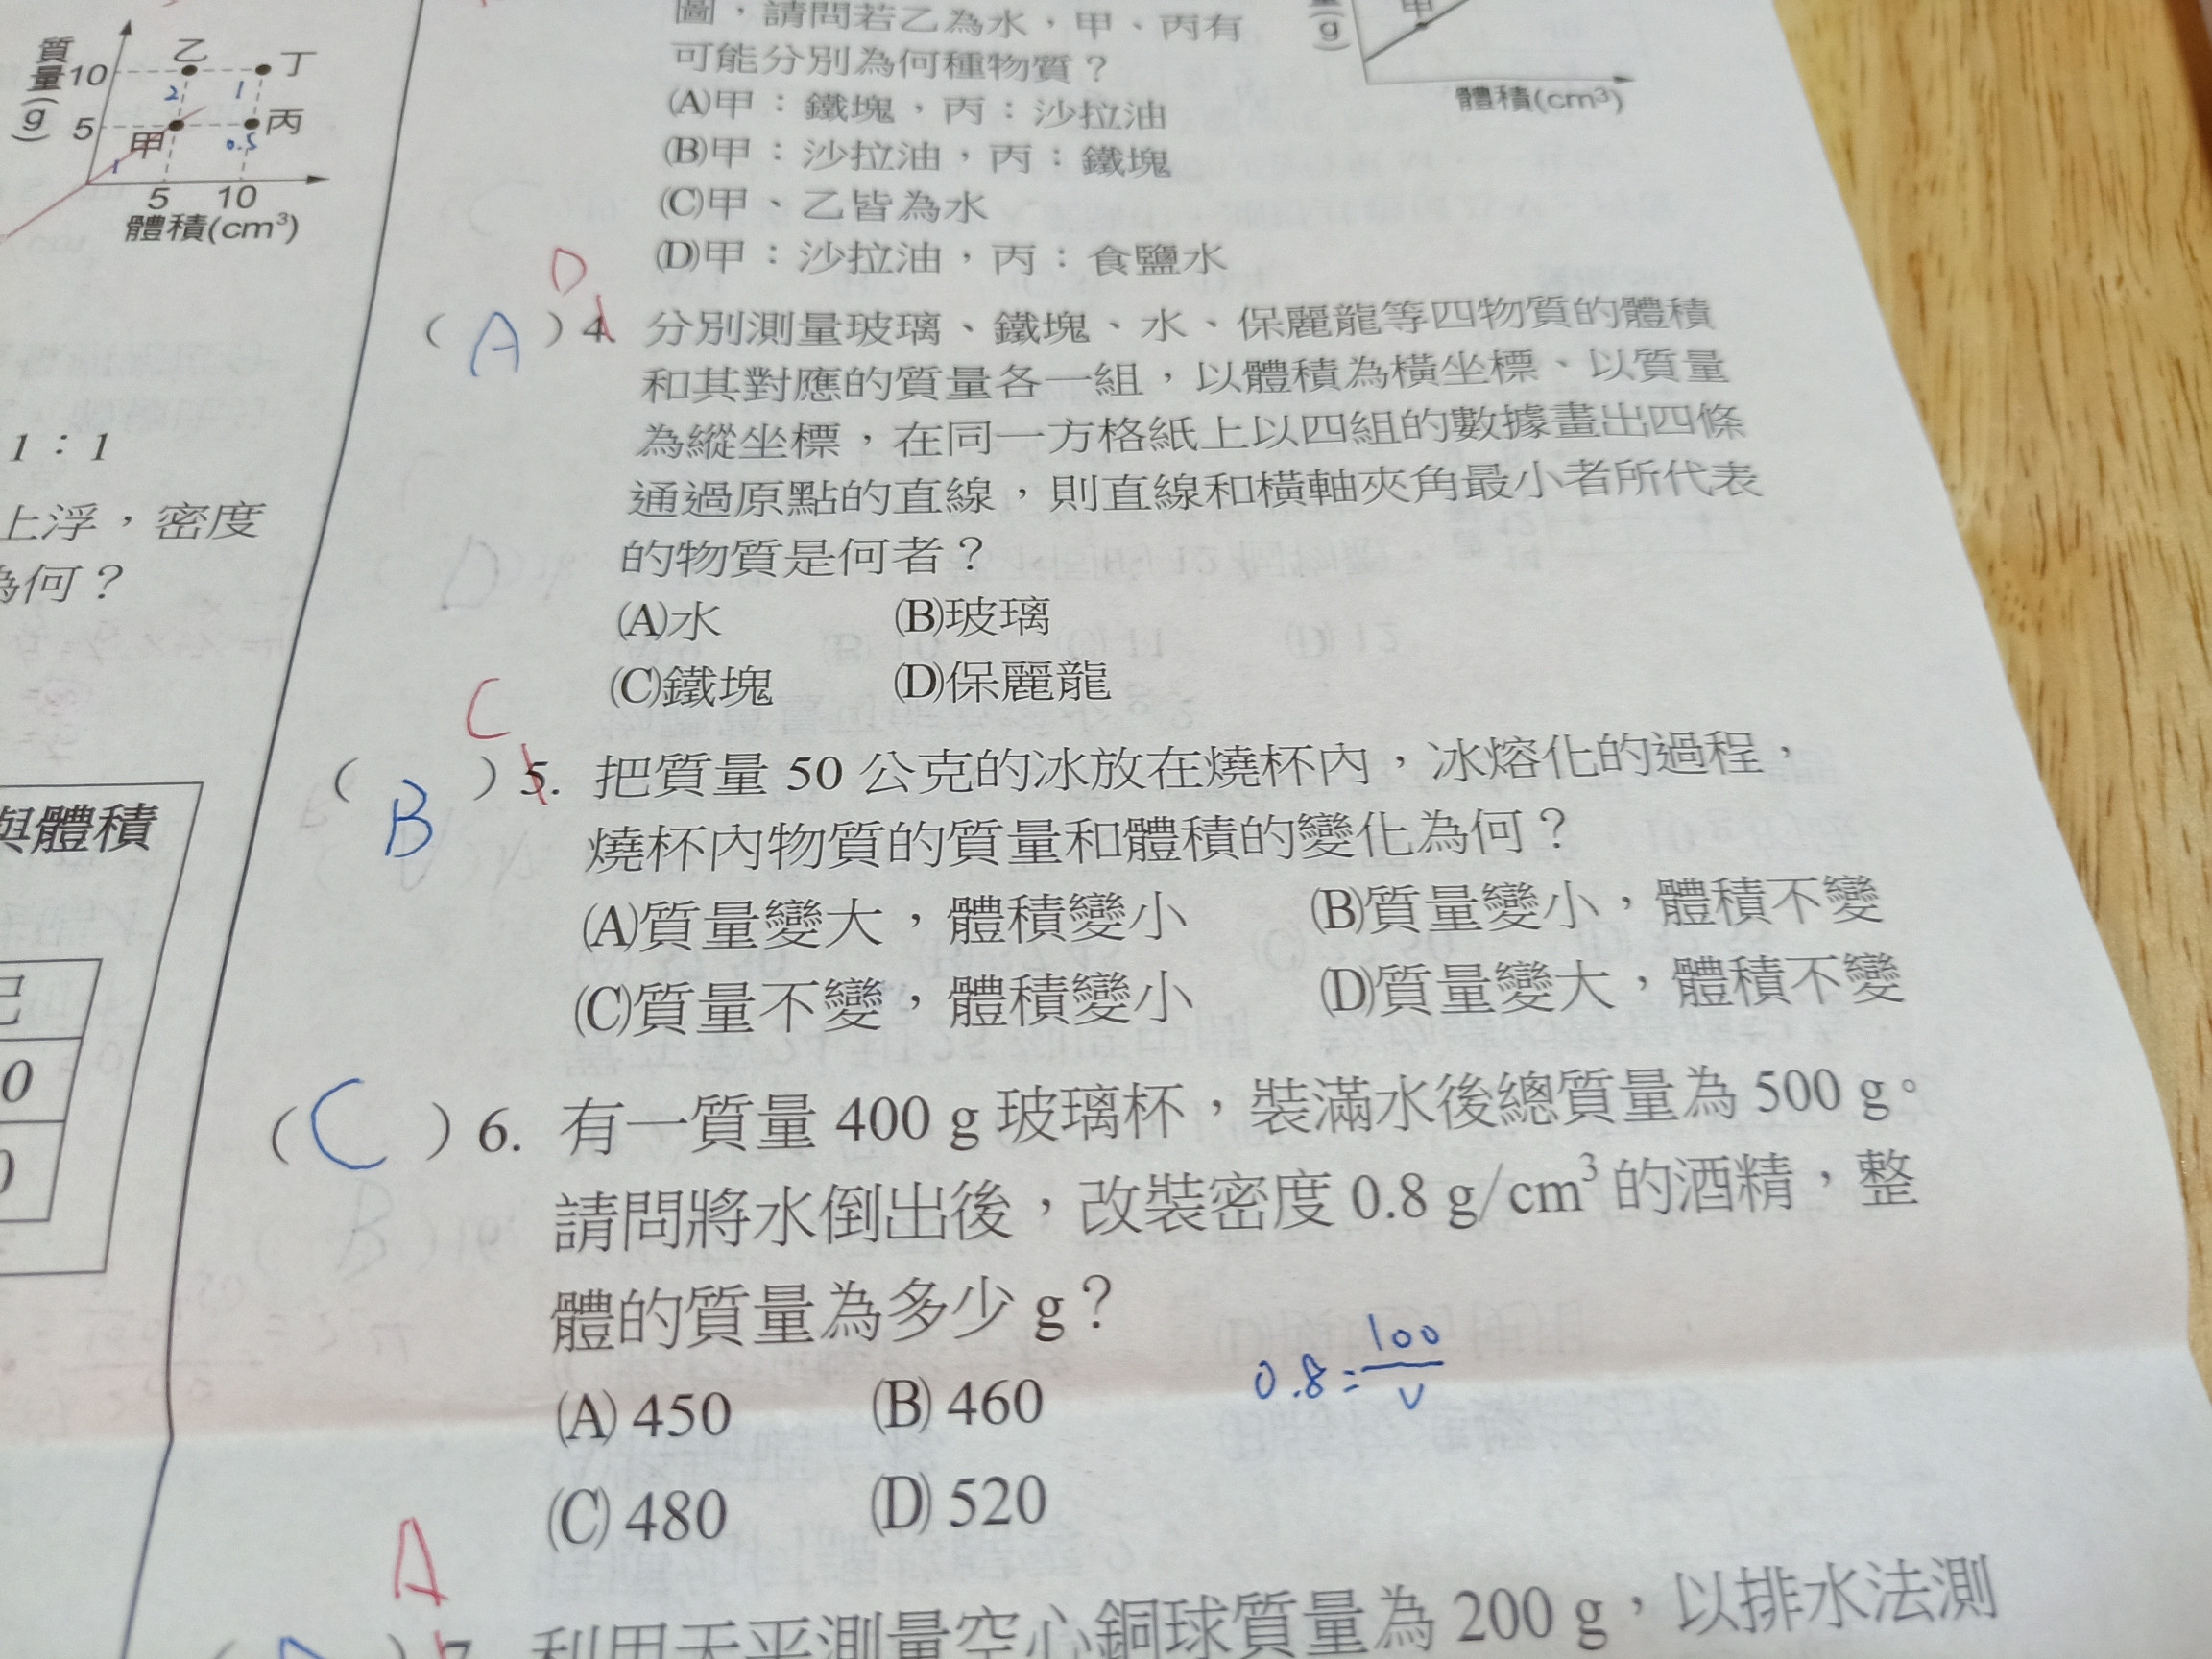 質
量
(g)
10
5
乙
丁
2
1
甲
丙
0.5
1
5
10
體積(cm³)
1：1
上浮，密度
為何？
與體積
己
0
圖，請問若乙為水，甲、丙有
可能分別為何種物質？
(A)甲：鐵塊，丙：沙拉油
(B)甲：沙拉油，丙：鐵塊
(C)甲、乙皆為水
(D)甲：沙拉油，丙：食鹽水
(g)
甲
體積(cm³)
D
( A )4. 分別測量玻璃、鐵塊、水、保麗龍等四物質的體積
和其對應的質量各一組，以體積為橫坐標、以質量
為縱坐標，在同一方格紙上以四組的數據畫出四條
通過原點的直線，則直線和橫軸夾角最小者所代表
的物質是何者？
(A)水 (B)玻璃
(C)鐵塊 (D)保麗龍
C
( B )5. 把質量 50 公克的冰放在燒杯內，冰熔化的過程，
燒杯內物質的質量和體積的變化為何？
(A)質量變大，體積變小 (B)質量變小，體積不變
(C)質量不變，體積變小 (D)質量變大，體積不變
( C )6. 有一質量 400 g 玻璃杯，裝滿水後總質量為 500 g。
請問將水倒出後，改裝密度 0.8 g/cm³ 的酒精，整
體的質量為多少 g？
0.8=100/V
(A) 450 (B) 460
(C) 480 (D) 520
A
7. 利用天平測量空心銅球質量為 200 g，以排水法測